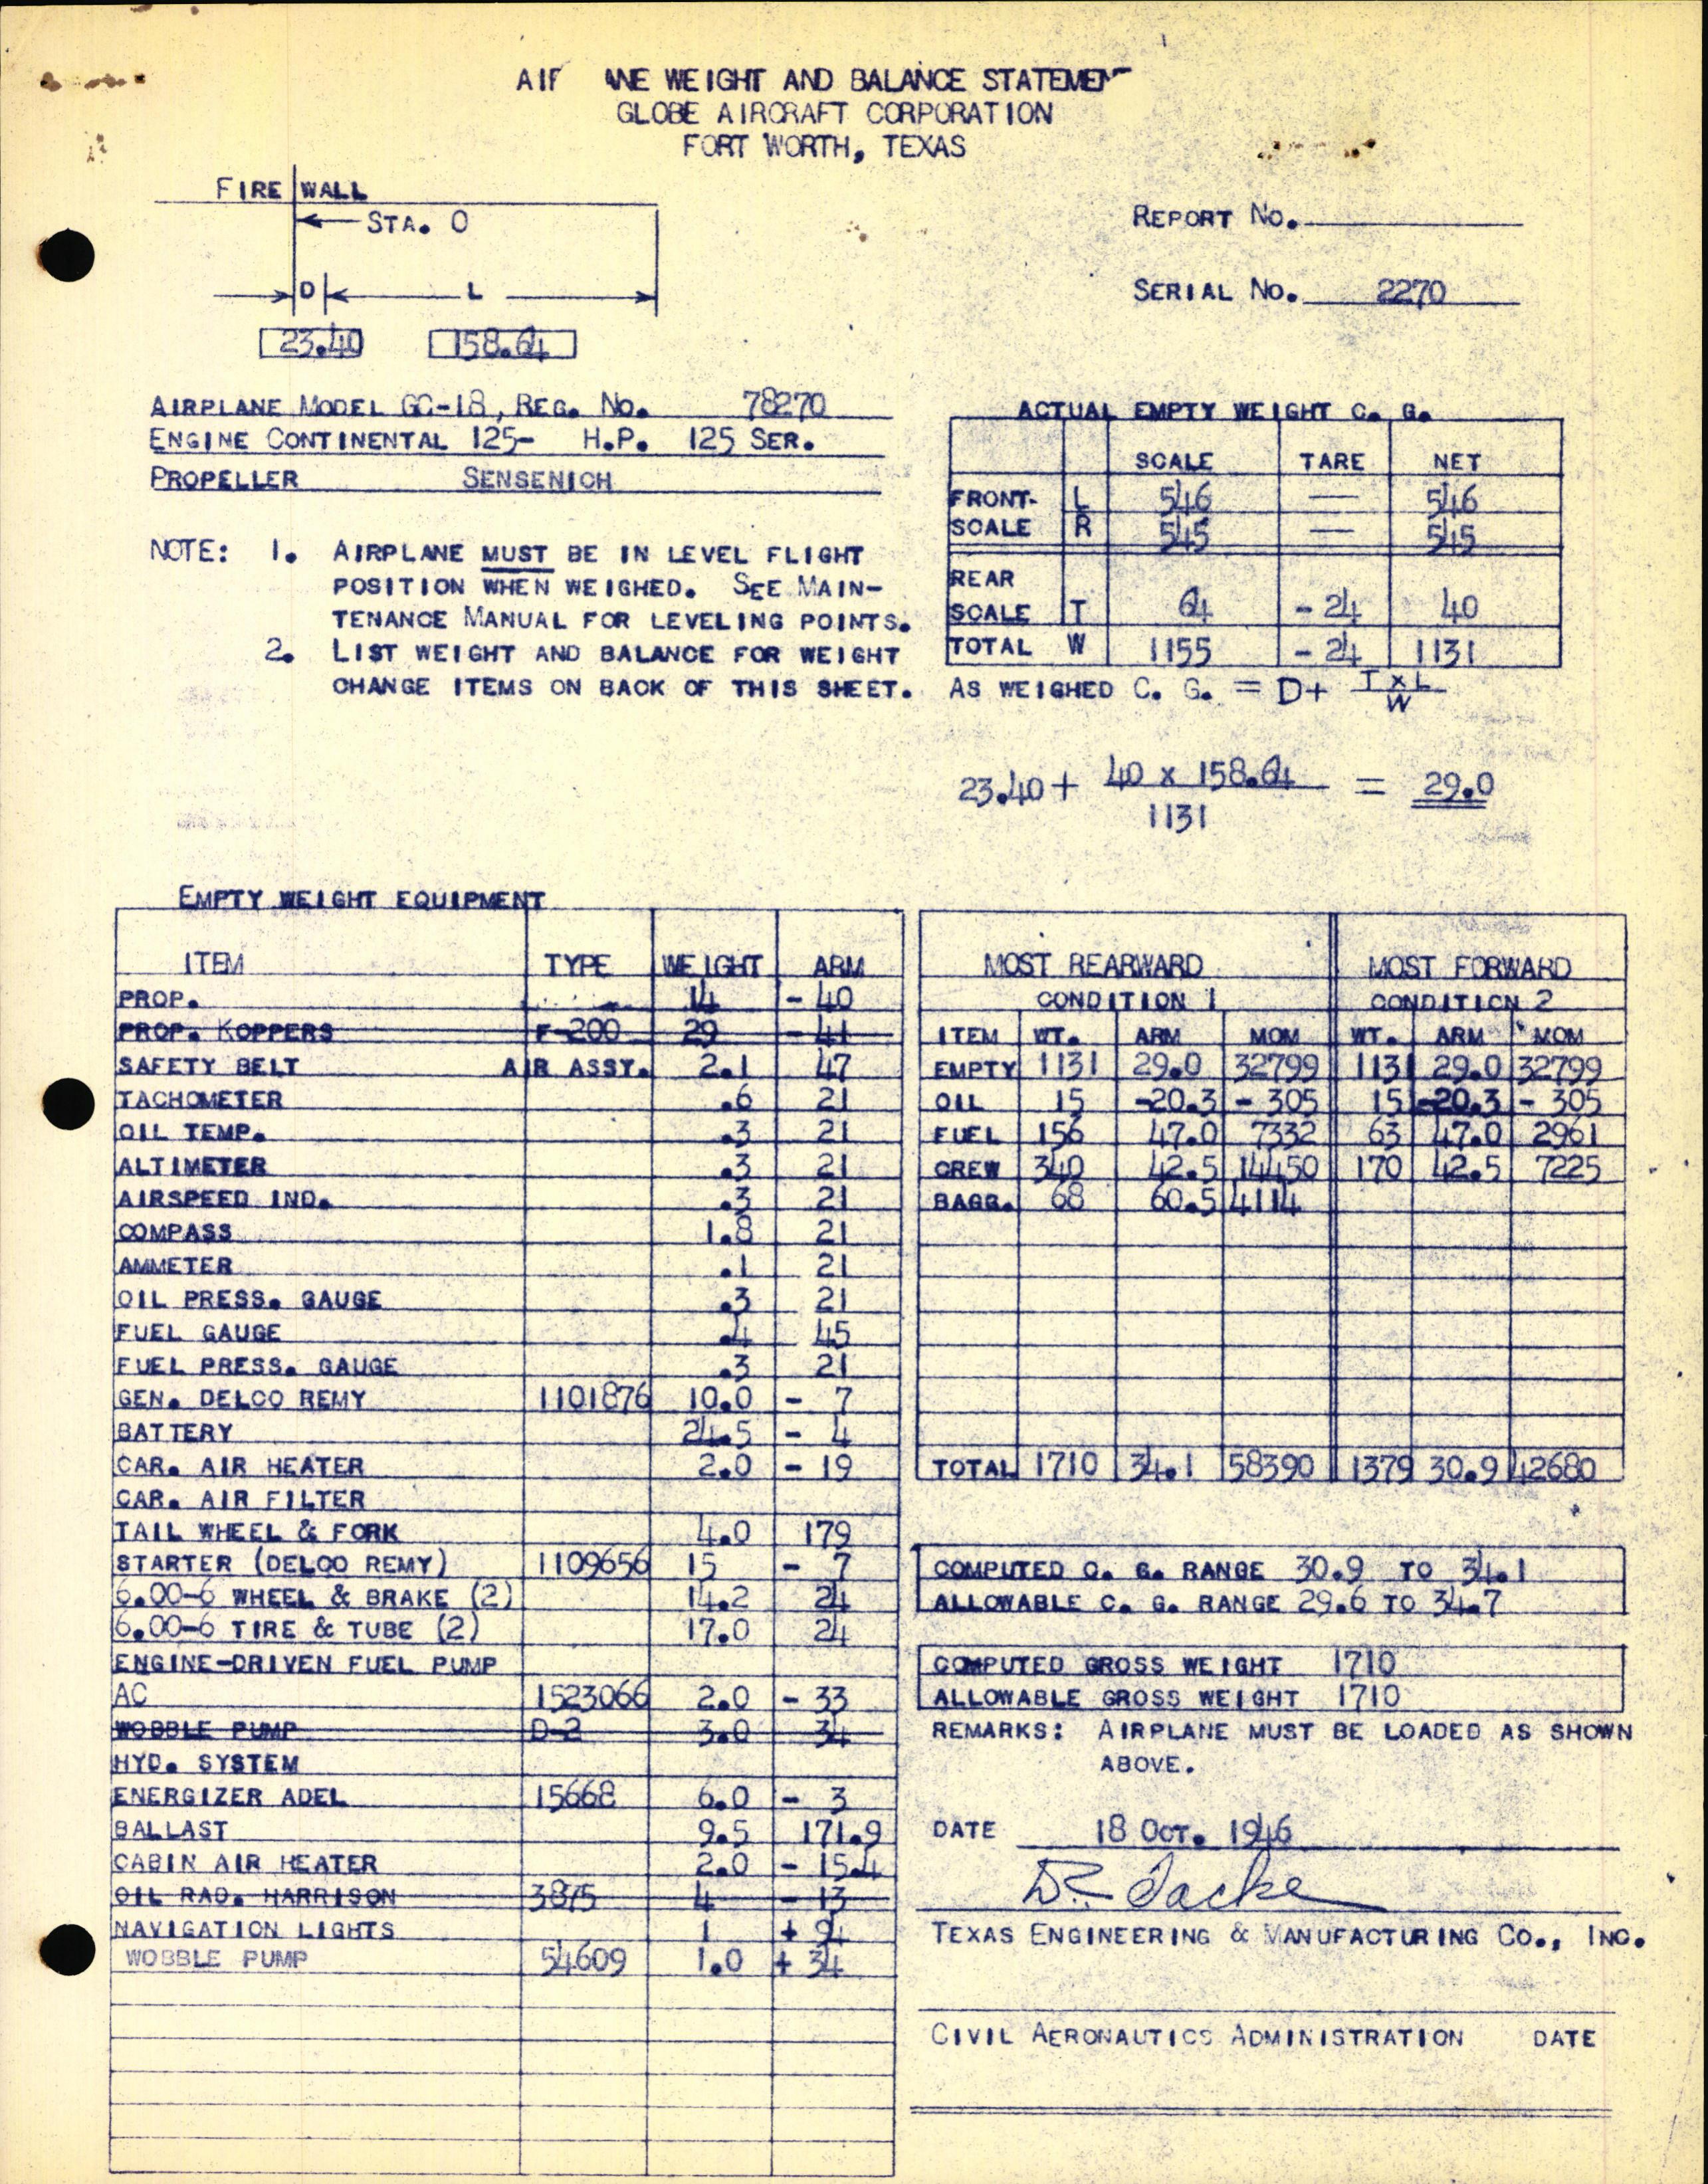 AIRPLANE WEIGHT AND BALANCE STATEMENT
GLOBE AIRCRAFT CORPORATION
FORT WORTH, TEXAS
FIRE WALL
STA. 0
D L
23.40 158.64
REPORT NO.
SERIAL NO. 2270
AIRPLANE MODEL GC-1B, REG. NO. 78270
ENGINE CONTINENTAL 125- H.P. 125 SER.
PROPELLER SENSENICH
NOTE: 1. AIRPLANE MUST BE IN LEVEL FLIGHT
POSITION WHEN WEIGHED. SEE MAIN-
TENANCE MANUAL FOR LEVELING POINTS.
2. LIST WEIGHT AND BALANCE FOR WEIGHT
CHANGE ITEMS ON BACK OF THIS SHEET.
ACTUAL EMPTY WEIGHT C. G.
SCALE TARE NET
FRONT- L 546 — 546
SCALE R 545 — 545
REAR
SCALE T 64 - 24 40
TOTAL W 1155 - 24 1131
AS WEIGHED C. G. = D+ T x L
W
23.40 + 40 x 158.64 = 29.0
1131
EMPTY WEIGHT EQUIPMENT
ITEM TYPE WEIGHT ARM
PROP. 14 - 40
PROP. KOPPERS F-200 29 - 41
SAFETY BELT AIR ASSY. 2.1 47
TACHOMETER .6 21
OIL TEMP. .3 21
ALTIMETER .3 21
AIRSPEED IND. .3 21
COMPASS 1.8 21
AMMETER .1 21
OIL PRESS. GAUGE .3 21
FUEL GAUGE .4 45
FUEL PRESS. GAUGE .3 21
GEN. DELCO REMY 1101876 10.0 - 7
BATTERY 24.5 - 4
CAR. AIR HEATER 2.0 - 19
CAR. AIR FILTER
TAIL WHEEL & FORK 4.0 179
STARTER (DELCO REMY) 1109656 15 - 7
6.00-6 WHEEL & BRAKE (2) 14.2 24
6.00-6 TIRE & TUBE (2) 17.0 24
ENGINE-DRIVEN FUEL PUMP
AC 1523066 2.0 - 33
WOBBLE PUMP D-2 3.0 34
HYD. SYSTEM
ENERGIZER ADEL 15668 6.0 - 3
BALLAST 9.5 171.9
CABIN AIR HEATER 2.0 - 15.4
OIL RAD. HARRISON 3875 4 - 13
NAVIGATION LIGHTS 1 + 94
WOBBLE PUMP 54609 1.0 + 34
MOST REARWARD MOST FORWARD
CONDITION 1 CONDITION 2
ITEM WT. ARM MOM WT. ARM MOM
EMPTY 1131 29.0 32799 1131 29.0 32799
OIL 15 -20.3 - 305 15 -20.3 - 305
FUEL 156 47.0 7332 63 47.0 2961
CREW 340 42.5 14450 170 42.5 7225
BAGG. 68 60.5 4114
TOTAL 1710 34.1 58390 1379 30.9 42680
COMPUTED C. G. RANGE 30.9 TO 34.1
ALLOWABLE C. G. RANGE 29.6 TO 34.7
COMPUTED GROSS WEIGHT 1710
ALLOWABLE GROSS WEIGHT 1710
REMARKS: AIRPLANE MUST BE LOADED AS SHOWN
ABOVE.
DATE 18 OCT. 1946
TEXAS ENGINEERING & MANUFACTURING CO., INC.
CIVIL AERONAUTICS ADMINISTRATION DATE